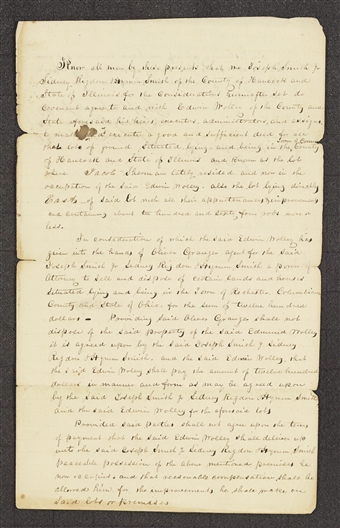 Know all men by these presents that we Joseph Smith Jr
Sidney Rigdon Hyrum Smith of the County of Hancock and
State of Illinois for the Considerations hereinafter set do
Covenant agree to and with Edwin Wolley of the County and
State aforesaid his heirs, executors, administrators, and assigns
to make & execute a good and sufficient deed for all
that lots of ground Situated, lying and being in the County
of Hancock and State of Illinois and Known as the lot
where Jacob Sherman lately resided and now in the
occupation of the Said Edwin Wolley. also the lot lying directly
East of Said lot with all their appurtenances
containing about two hundred and sixty four rods more or
less.
In consideration of which the Said Edwin Wolley has
given into the hands of Oliver Granger agent for the Said
Joseph Smith Jr Sidney Rigdon & Hyrum Smith a power of
Attorney to Sell and dispose of certain lands and
Situated lying and being in the Town of Rochester Columbiana
County and State of Ohio for the Sum of twelve hundred
dollars — Providing Said Oliver Granger Shall not
dispose of the Said property of the Said Edmund Wolley
it is agreed upon by the Said Joseph Smith Jr Sidney
Rigdon & Hyrum Smith, and the Said Edwin Wolley, that
the Said Edwin Wolley Shall pay the amount of twelve hundred
dollars in manner and form as may be agreed upon
by the Said Joseph Smith Jr Sidney Rigdon & Hyrum Smith
and the Said Edwin Wolley for the aforesaid lots
Provided Said parties Shall not agree upon the terms
of payment that the Said Edwin Wolley Shall deliver up
unto the Said Joseph Smith Jr Sidney Rigdon & Hyrum Smith
peaceable possession of the above mentioned premises he
now occupies and that reasonable compensation Shall be
allowed him for the improvements he Shall make on
Said lots or premises